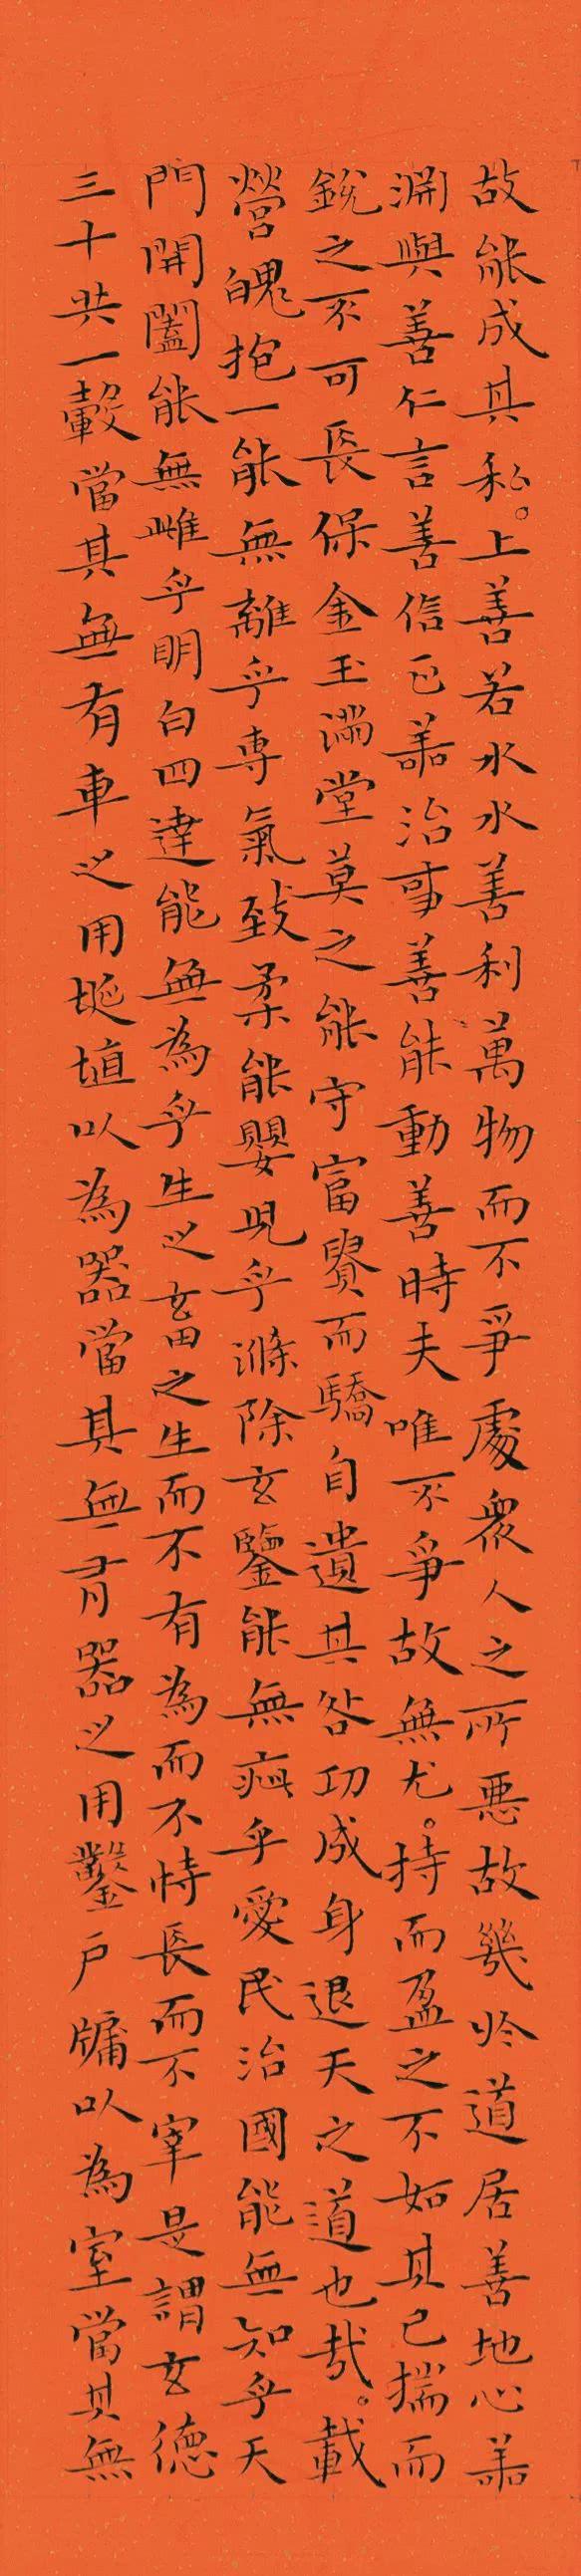 故能成其私。上善若水水善利萬物而不爭處衆人之所惡故幾於道居善地心善
淵與善仁言善信正善治事善能動善時夫唯不爭故無尤。持而盈之不如其已揣而
銳之不可長保金玉滿堂莫之能守富貴而驕自遺其咎功成身退天之道也哉。載
營魄抱一能無離乎專氣致柔能嬰兒乎滌除玄鑒能無疵乎愛民治國能無知乎天
門開闔能無雌乎明白四達能無為乎生之玄畜之生而不有為而不恃長而不宰是謂玄德
三十共一轂當其無有車之用埏埴以為器當其無有器之用鑿戶牖以為室當其無